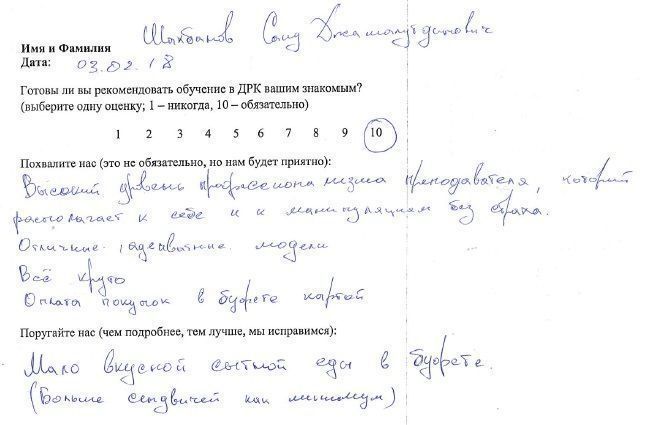 Шихбанов Саид Джамалутдинович
Имя и Фамилия
Дата: 03.02.18
Готовы ли вы рекомендовать обучение в ДРК вашим знакомым?
(выберите одну оценку; 1 – никогда, 10 – обязательно)
1 2 3 4 5 6 7 8 9 10
Похвалите нас (это не обязательно, но нам будет приятно):
Высокий уровень профессионализма преподавателя, который
располагает к себе и к манипуляциям без страха.
Отличные, адекватные модели
Всё круто
Оплата покупок в буфете картой
Поругайте нас (чем подробнее, тем лучше, мы исправимся):
Мало вкусной сытной еды в буфете.
(Больше сендвичей как минимум)